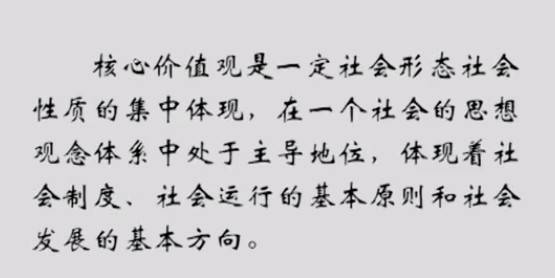 核心价值观是一定社会形态社会
性质的集中体现，在一个社会的思想
观念体系中处于主导地位，体现着社
会制度、社会运行的基本原则和社会
发展的基本方向。